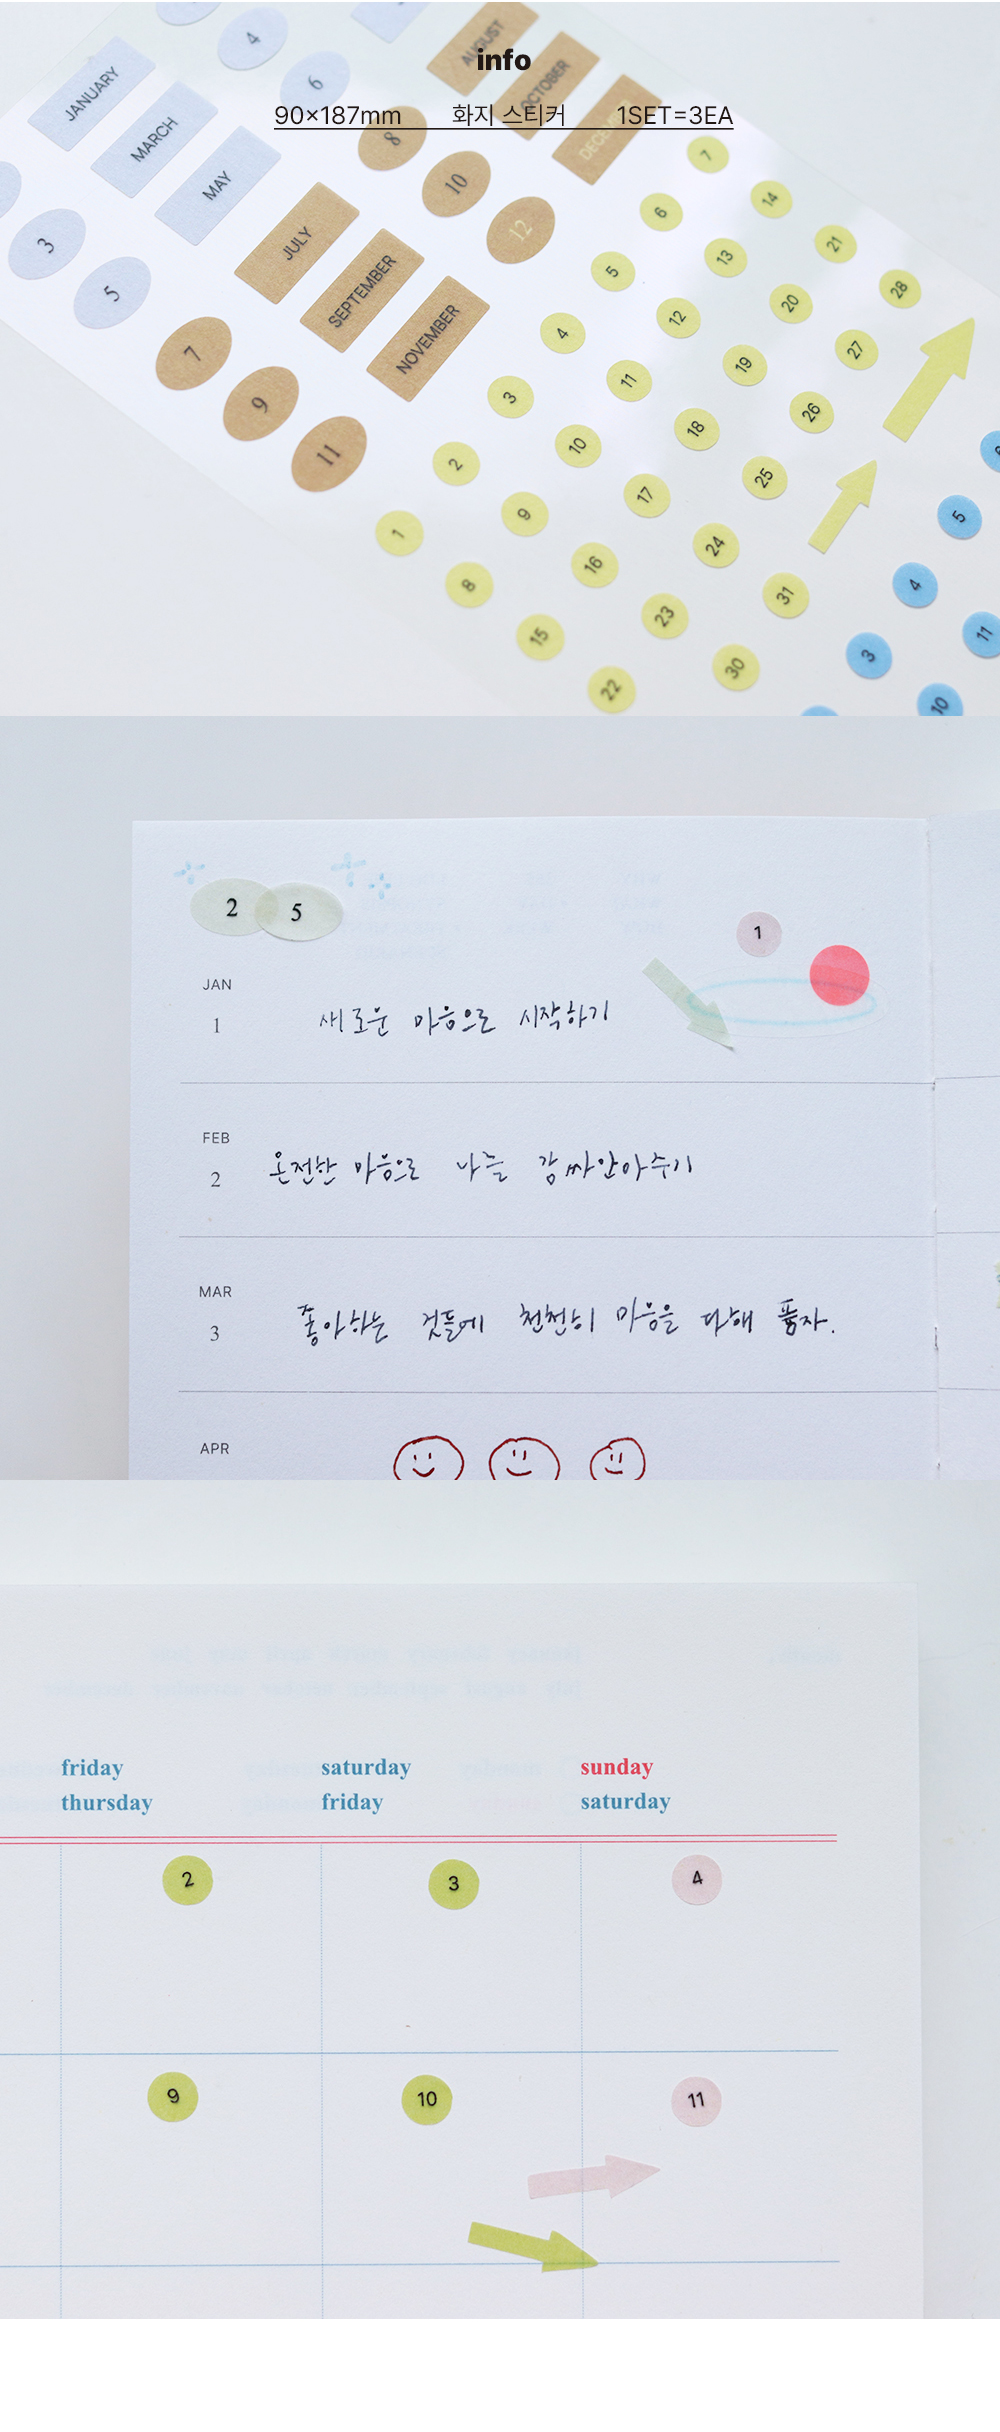 info
90×187mm 화지 스티커 1SET=3EA
4
6
JANUARY
MARCH
MAY
3
5
AUGUST
OCTOBER
8
10
12
JULY
SEPTEMBER
NOVEMBER
7
9
11
7
14
21
28
6
13
20
27
5
12
19
26
4
11
18
25
3
10
17
24
31
2
9
16
23
30
1
8
15
22
5
4
11
3
10
2 5
1
JAN
1
새로운 마음으로 시작하기
FEB
2
온전한 마음으로 나를 감싸안아주기
MAR
3
좋아하는 것들에 천천히 마음을 다해 품자.
APR
friday saturday sunday
thursday friday saturday
2 3 4
9 10 11